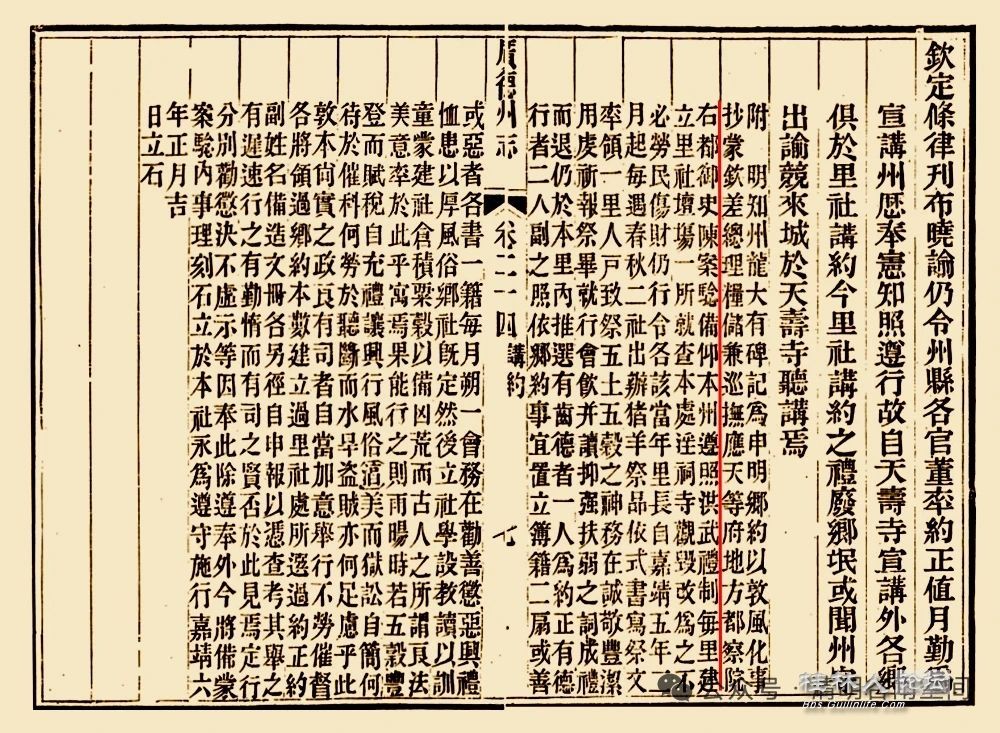 欽定條律刊布曉諭仍令州縣各官董率約正值月勤為
宣講州厯奉憲知照遵行故自天壽寺宣講外各鄉
俱於里社講約今里社講約之禮廢鄉氓或聞州守
出諭競來城於天壽寺聽講焉
附 明知州龍大有碑記為申明鄉約以敦風化事
抄蒙欽差總理糧儲兼巡撫應天等府地方都察院
右都御史陳案驗備仰本州遵照洪武禮制每里建
立里社壇塲一所就查本處淫祠寺觀毀改為之不
必勞民傷財仍行令各該當年里長自嘉靖五年二
月起每遇春秋二社出辦猪羊祭品依式書寫祭文
率領一里人戸致祭五土五穀之神務在誠敬豐潔
用虔祈報祭畢就行會飲并讀抑强扶弱之詞成禮
而退仍於本里內推選有齒德者一人為約正有德
行者二人副之照依鄉約事宜置立簿籍二扇或善
廣德州志
卷二十四
講約
七
或惡者各書一籍每月朔一會務在勸善懲惡興禮
恤患以厚風俗鄉社旣定然後立社學設教讀以訓
童蒙建社倉積粟穀以備凶荒而古人之所謂良法
美意率於此乎寓焉果能行之則雨暘時若五穀豐
登而賦稅自充禮讓興行風俗淳美而獄訟自簡何
待於催科何勞於聽斷而水旱盜賊亦何足慮乎此
敦本尚實之政良有司者自當加意舉行不勞催督
各將領過鄉約本數建立過里社處所選過約正約
副姓名備造文冊各另徑自申報以憑查考其舉之
有遲速行之有勤惰而有司之賢否於此見焉定行
分別勸懲決不虛示等因奉此除遵奉外今將備蒙
案驗內事理刻石立於本社永為遵守施行嘉靖六
年正月吉
日立石
公众号
桂林人论坛
Bbs.Guilinlife.Com